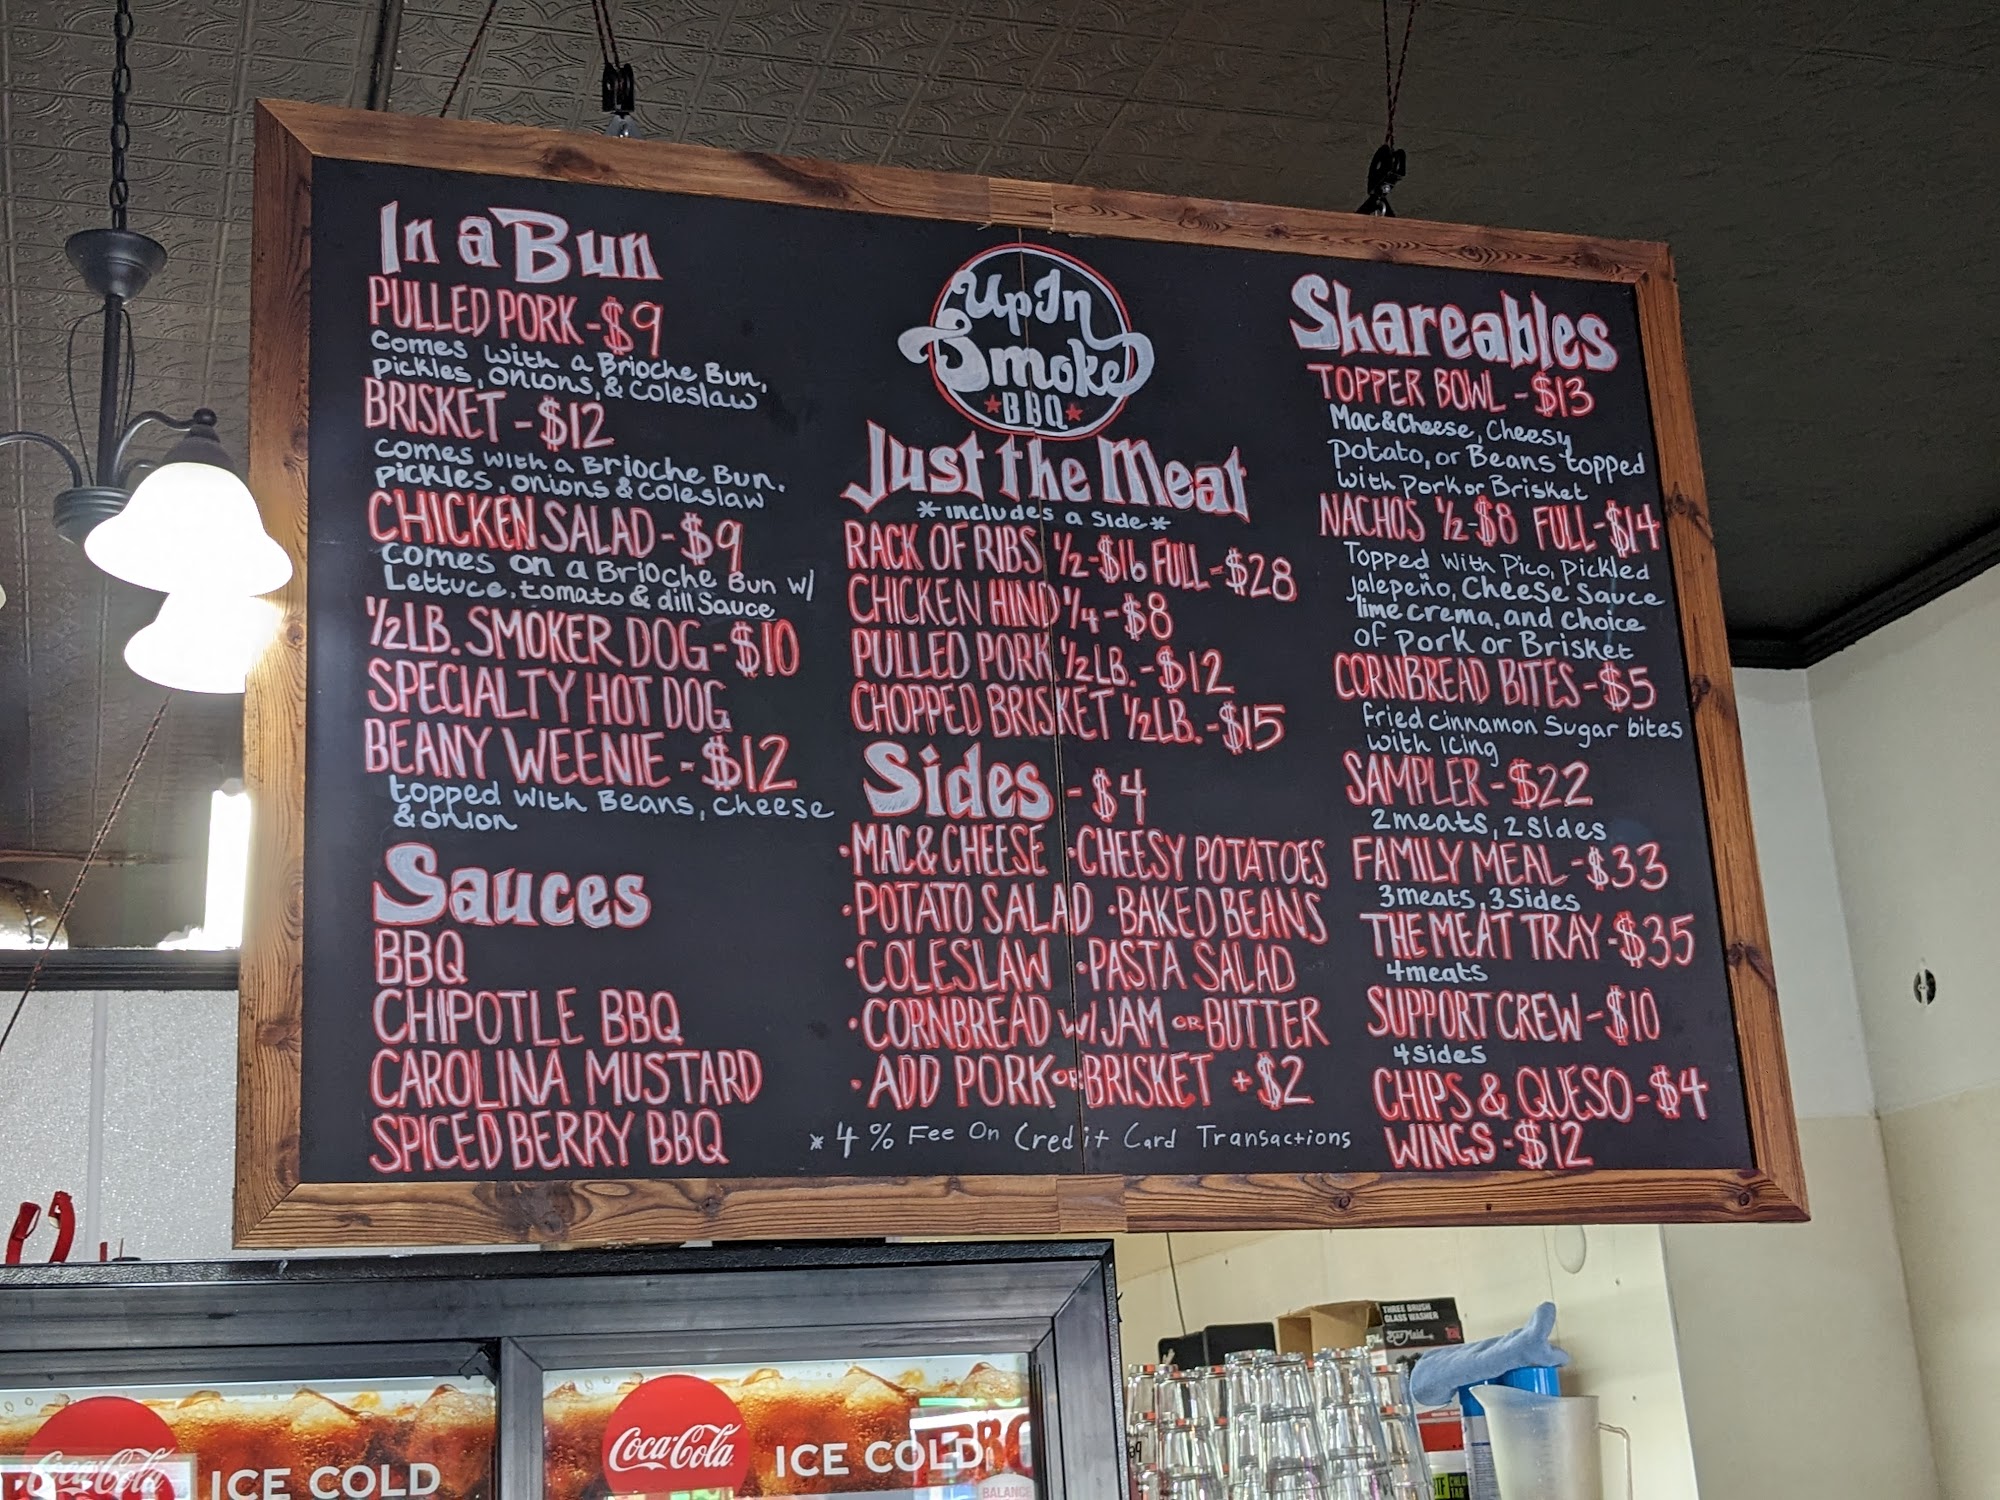 In a Bun
PULLED PORK - $9
Comes with a Brioche Bun,
pickles, onions, & Coleslaw
BRISKET - $12
Comes with a Brioche Bun,
pickles, onions & Coleslaw
CHICKEN SALAD - $9
Comes on a Brioche Bun w/
Lettuce, tomato & dill Sauce
1/2 LB. SMOKER DOG - $10
SPECIALTY HOT DOG
BEANY WEENIE - $12
topped with Beans, Cheese
& onion
Sauces
BBQ
CHIPOTLE BBQ
CAROLINA MUSTARD
SPICED BERRY BBQ
Up In
Smoke
BBQ
Just the Meat
*includes a side*
RACK OF RIBS 1/2-$16 FULL-$28
CHICKEN HIND 1/4-$8
PULLED PORK 1/2 LB.-$12
CHOPPED BRISKET 1/2 LB.-$15
Sides - $4
•MAC & CHEESE •CHEESY POTATOES
•POTATO SALAD •BAKED BEANS
•COLESLAW •PASTA SALAD
•CORNBREAD w/ JAM OR BUTTER
•ADD PORK OR BRISKET +$2
*4% Fee On Credit Card Transactions
Shareables
TOPPER BOWL - $13
Mac&Cheese, Cheesy
potato, or Beans topped
with pork or Brisket
NACHOS 1/2-$8 FULL-$14
Topped with Pico, pickled
Jalepeño, Cheese Sauce
lime crema, and choice
of pork or Brisket
CORNBREAD BITES-$5
fried cinnamon Sugar bites
with icing
SAMPLER - $22
2 meats, 2 sides
FAMILY MEAL - $33
3 meats, 3 sides
THE MEAT TRAY - $35
4 meats
SUPPORT CREW - $10
4 sides
CHIPS & QUESO - $4
WINGS - $12
THREE BRUSH
GLASS WASHER
Coca-Cola
ICE COLD
Coca-Cola
ICE COLD
BALANCE